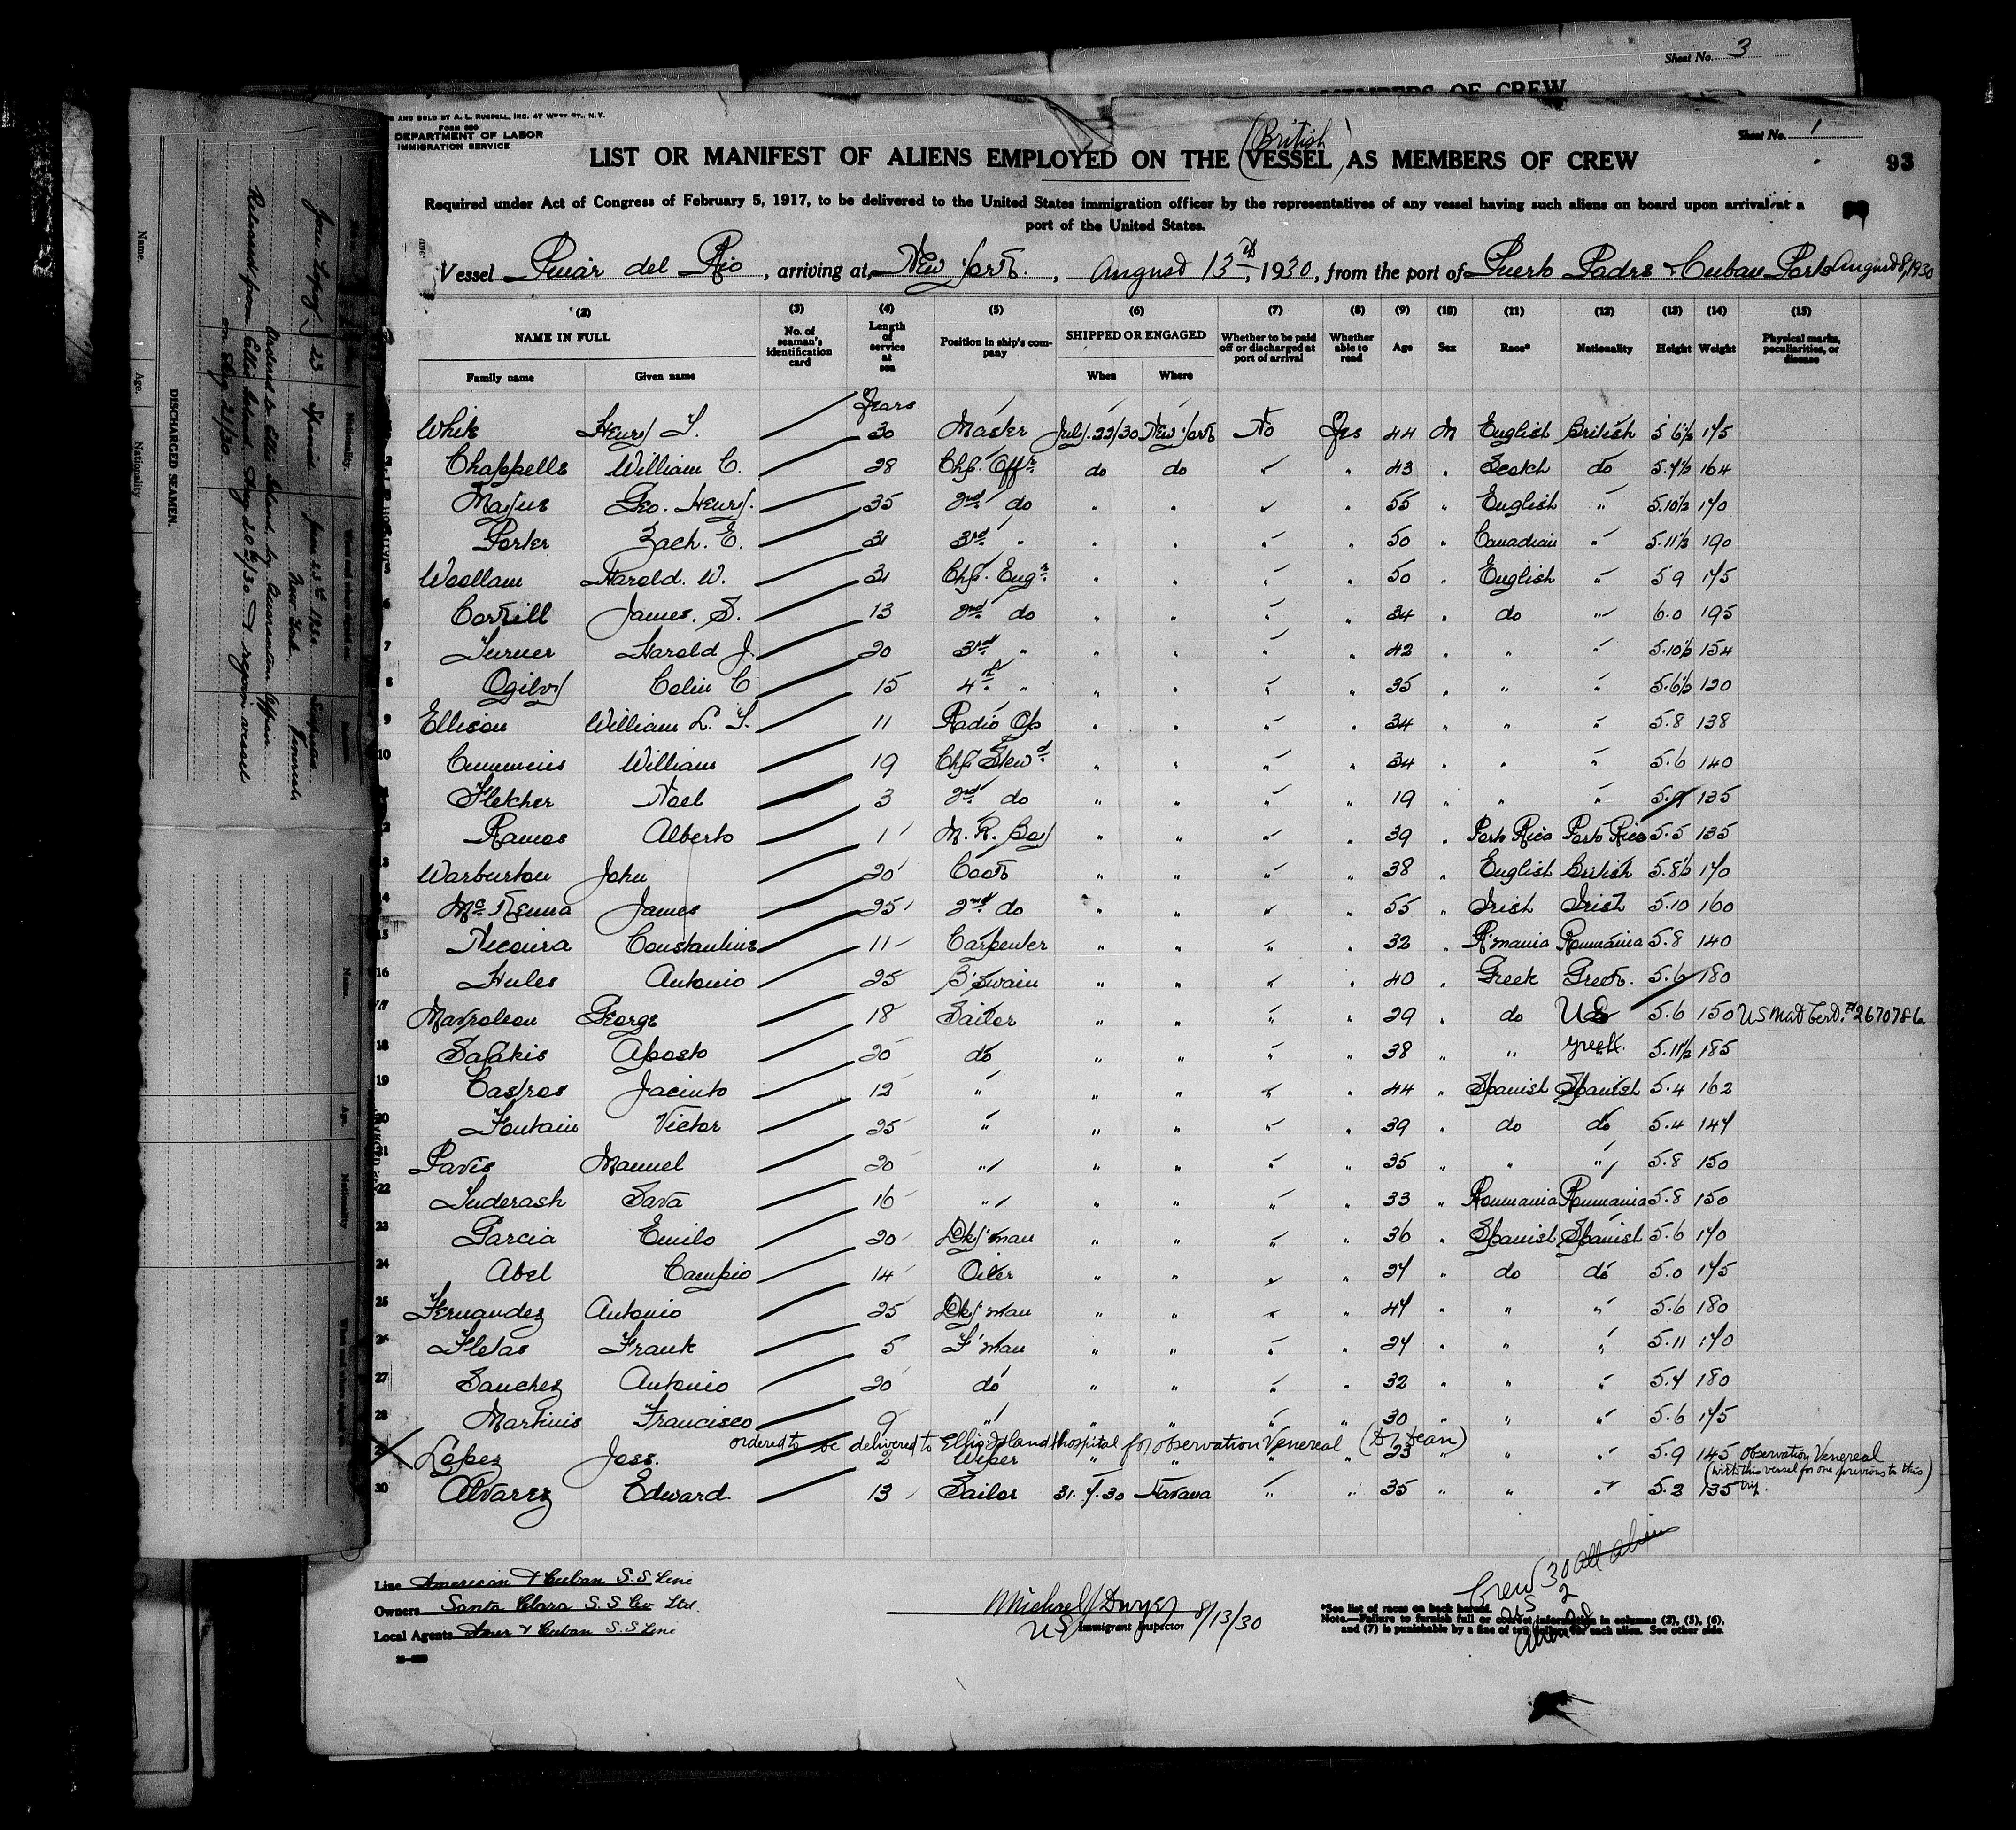 Sheet No. 3
MEMBERS OF CREW
AND SOLD BY A. L. RUSSELL, INC. 47 WEST ST., N.Y.
FORM 680
DEPARTMENT OF LABOR
IMMIGRATION SERVICE
Sheet No. 1
93
(British)
LIST OR MANIFEST OF ALIENS EMPLOYED ON THE VESSEL AS MEMBERS OF CREW
Required under Act of Congress of February 5, 1917, to be delivered to the United States immigration officer by the representatives of any vessel having such aliens on board upon arrival at a
port of the United States.
Vessel Pinar del Rio, arriving at New York, August 13th, 1930, from the port of Puerto Padre & Cuban Ports August 8, 1930
(2) (3) (4) (5) (6) (7) (8) (9) (10) (11) (12) (13) (14) (15)
NAME IN FULL No. of seaman's identification card Length of service at sea Position in ship's company SHIPPED OR ENGAGED Whether to be paid off or discharged at port of arrival Whether able to read Age Sex Race* Nationality Height Weight Physical marks, peculiarities, or disease
Family name Given name When Where
Years
White Henry T. 30 Master July 22/30 New York No Yes 44 M English British 5 6½ 175
2 Chappells William C. 28 Chf. Offr. do do " " 43 " Scotch do 5.7½ 164
Geo. Henry. 35 2nd do " " " " 55 " English " 5.10½ 170
Porter Zach. E. 31 3rd " " " " " 50 " Canadian " 5.11½ 190
5 Woollam Harold. W. 31 Chf. Engr. " " " " 50 " English " 5 9 175
6 James. S. 13 2nd do " " " " 34 " do " 6.0 195
7 Turner Harold J. 20 3rd " " " " " 42 " " " 5.10½ 154
8 Ogilvy Colin C 15 4th " " " " " 35 " " " 5.6½ 120
9 Ellison William L. T. 11 Radio Op " " " " 34 " " " 5.8 138
10 Cummins William 19 Chf. Stewd. " " " " 34 " " " 5.6 140
Fletcher Noel 3 2nd do " " " " 19 " " " 5.9 135
2 Ramos Alberto 1 M. R. Boy " " " " 39 " Porto Rico Porto Rico 5.5 135
3 Warburton John 20 Cook " " " " 38 " English British 5.8½ 170
14 McKenna James 25 2nd do " " " " 55 " Irish Irish 5.10 160
15 Constantine 11 Carpenter " " " " 32 " R'mania Roumania 5.8 140
16 Hules Antonio 25 B'swain " " " " 40 " Greek Greek. 5.6 180
17 Mavroleon George 18 Sailor " " " " 29 " do US 5.6 150 US Nat Cert. # 2670786.
18 Safakis Aposto 20 do " " " " 38 " " Greek. 5.11½ 185
19 Castros Jacinto 12 " " " " " 44 " Spanish Spanish 5.4 162
20 Fontain Victor 25 " " " " " 39 " do do 5.4 147
21 Pavis Manuel 20 " " " " " 35 " " " 5.8 150
22 Tuderash Sava 16 " " " " " 33 " Roumania Roumania 5.8 150
23 Garcia Emilo 20 Dky'man " " " " 36 " Spanish Spanish 5.6 170
24 Abel Campio 14 Oiler " " " " 27 " do do 5.0 175
25 Fernandez Antonio 25 Dky'man " " " " 47 " " " 5.6 180
26 Fletas Frank 5 F'man " " " " 27 " " " 5.11 170
27 Sanchez Antonio 20 do " " " " 32 " " " 5.7 180
28 Martinis Francisco 9 " " " " " 30 " " " 5.6 175
ordered to be delivered to Ellis Island hospital for observation Venereal (Dr Dean)
X Lopez Jose. 2 Wiper " " " " 23 " " " 5.9 145 Observation Venereal
(with this vessel for one previous to this) trip.
30 Alvarez Edward. 13 Sailor 31.7.30 Havana " " 35 " " " 5.2 135
Crew 30 all alien
US 2
Line American & Cuban S.S Line
Owners Santa Clara S.S Co Ltd.
Local Agents Amer & Cuban S.S Line
Michael J Dwyer 8/13/30
US Immigrant Inspector
*See list of races on back hereof.
Note.—Failure to furnish full or correct information in columns (2), (5), (6),
and (7) is punishable by a fine of ten dollars for each alien. See other side.
DISCHARGED SEAMEN.
Name. Age. Nationality
Jose Lopez 23 Spanish June 23rd 1930 New York
Ordered to Ellis Island by Quarantine Officer.
Released from Ellis Island Aug 20th/30 & rejoin vessel
on Aug 21/30
Name. Age. Nationality